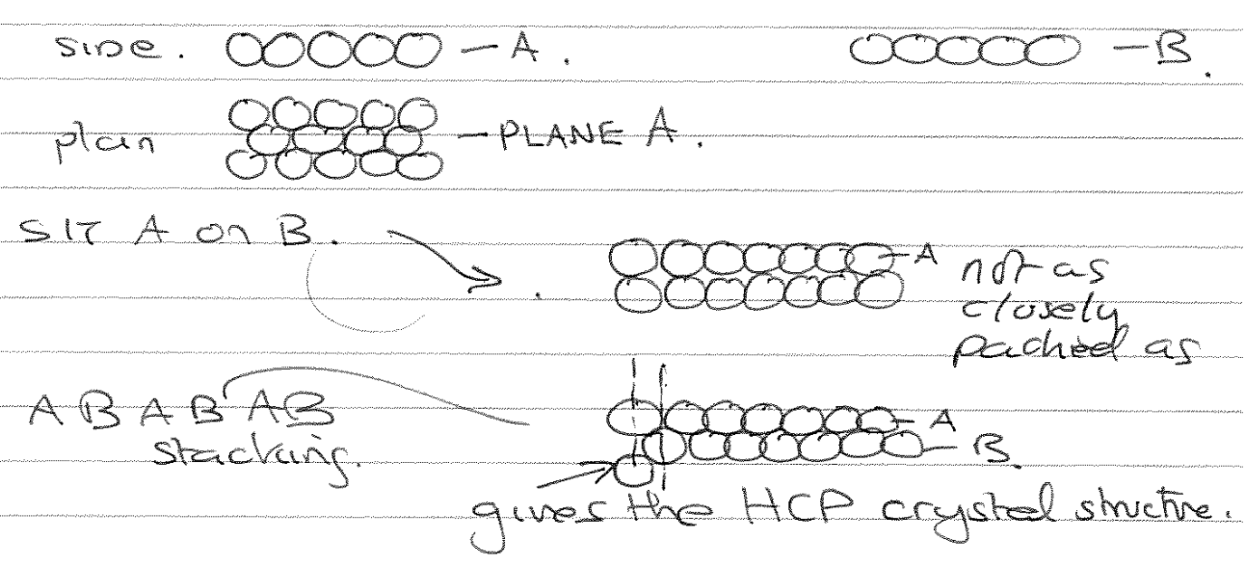 SIDE. — A. — B.
plan — PLANE A.
SIT A on B.
— A not as
closely
packed as
A B A B A B — A
stacking. — B.
gives the HCP crystal structure.